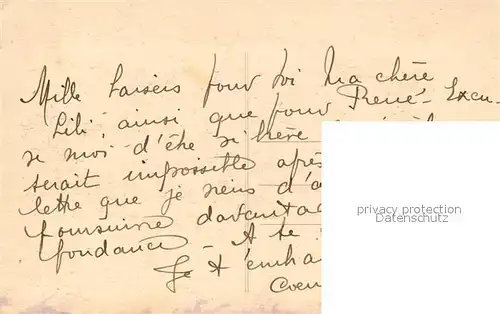 Mille baisers pour toi Ma chère
Lili, ainsi que pour René - Excu-
se moi d'être si brève
serait impossible après
lettre que je viens d'a
poursuivre davantag
pondance - A te
Je t'embra
Coeu
privacy protection
Datenschutz